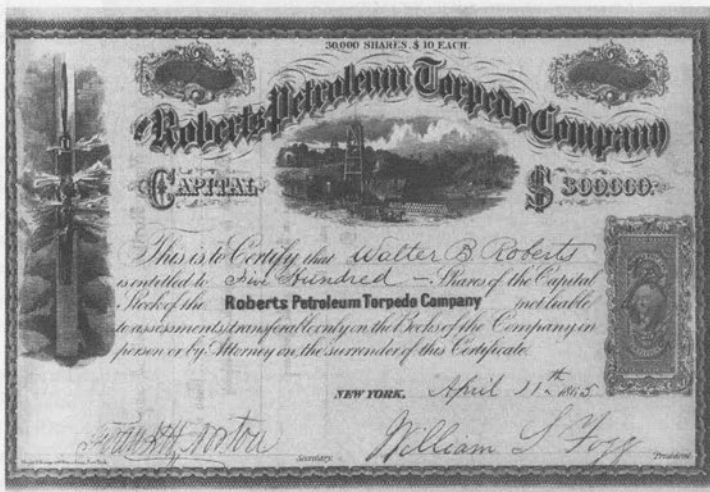 30,000 SHARES, $10 EACH.
Roberts Petroleum Torpedo Company
CAPITAL $300,000.
This is to Certify that Walter B Roberts
is entitled to Five Hundred — Shares of the Capital
Stock of the Roberts Petroleum Torpedo Company not liable
to assessments, transferable only on the Books of the Company in
person or by Attorney on the surrender of this Certificate.
NEW YORK, April 11th 1865
Norton William L Fogg
Secretary. President.